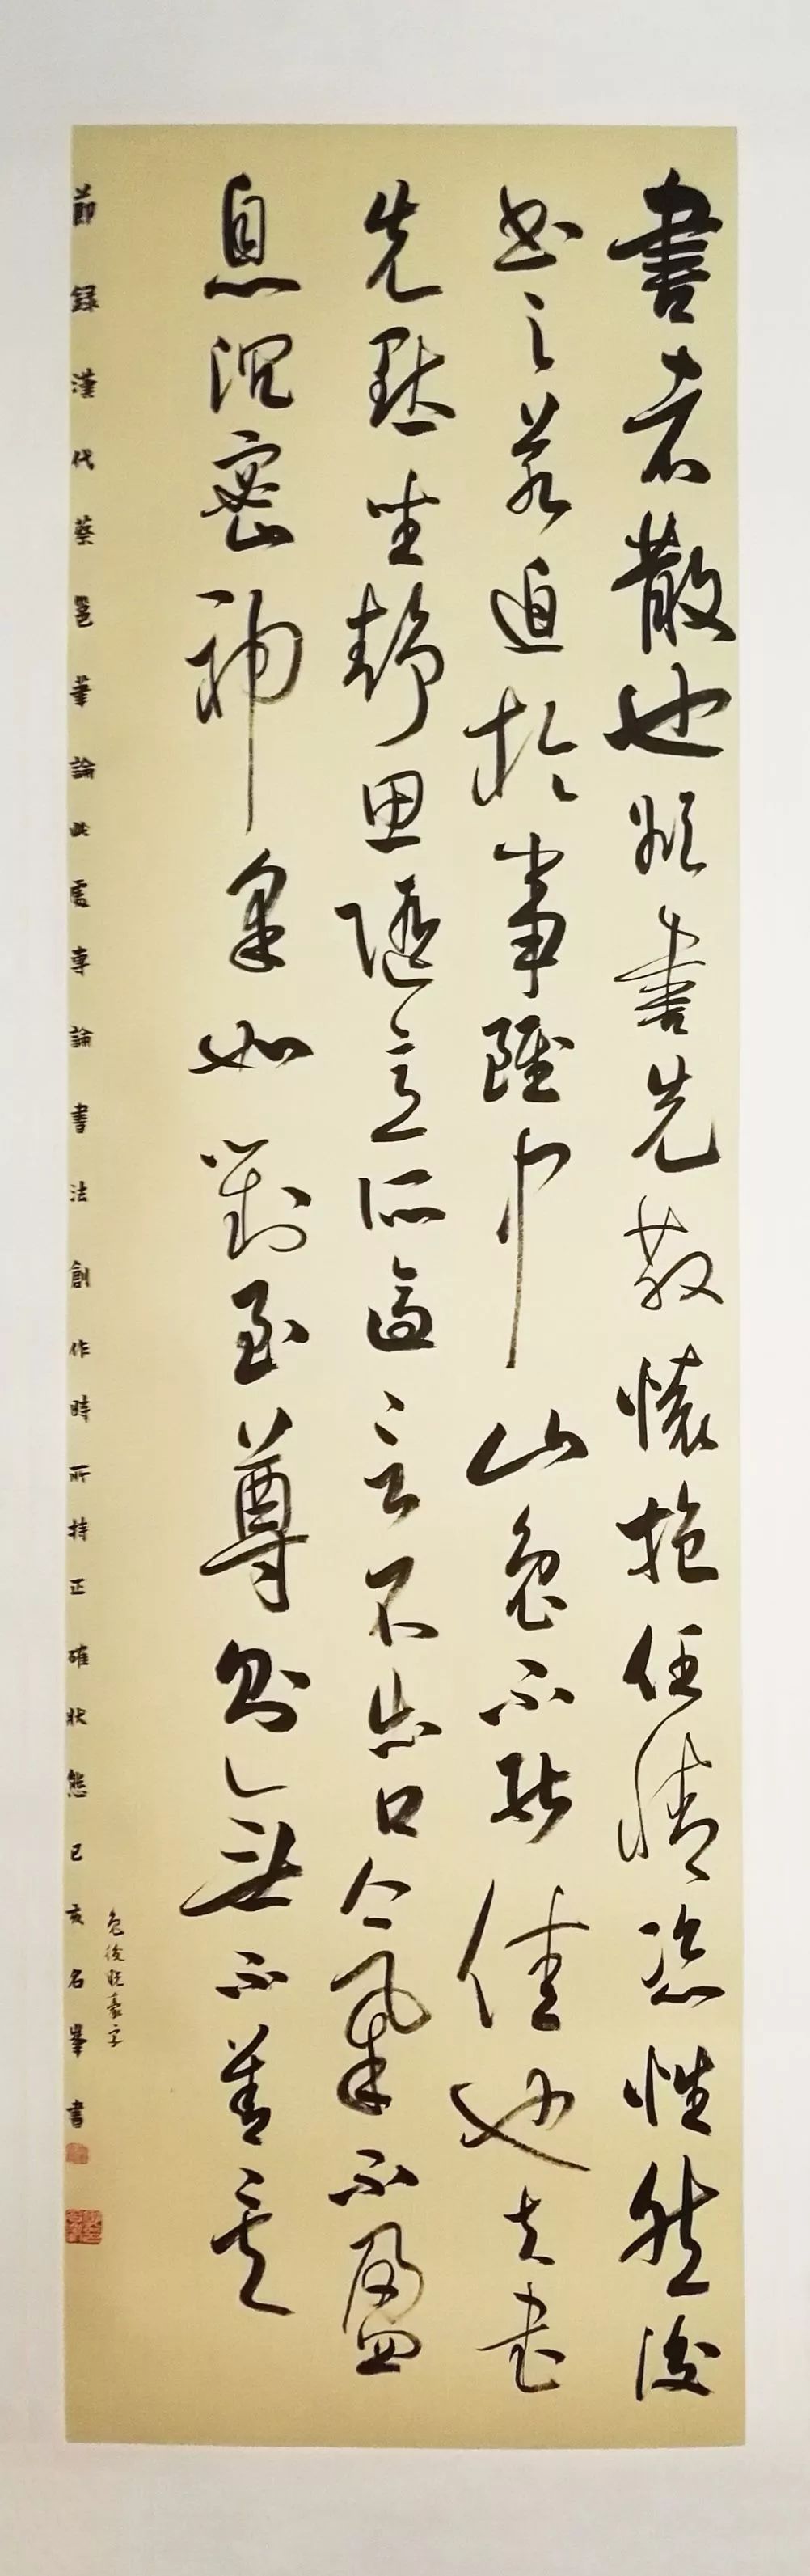 書者散也欲書先散懷抱任情恣性然後
書之若迫於事雖中山兔不能佳也夫書
先默坐靜思隨意所適言不出口氣不盈
息沉密神采如對至尊則無不善矣
節録漢代蔡邕筆論此處專論書法創作時所持正確狀態已亥名峯書
兔後脱豪字